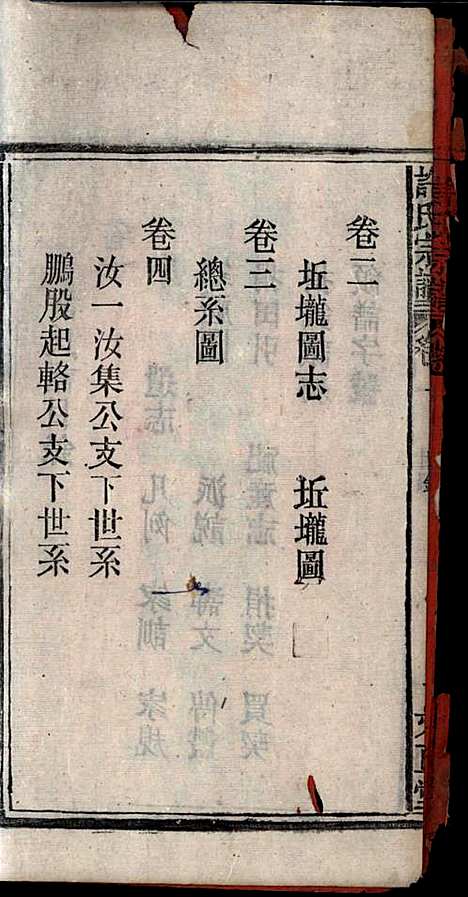 卷二
坵壠圖志　坵壠圖
卷三
總系圖
卷四
汝一汝集公支下世系
鵬股起輅公支下世系
氏宗譜